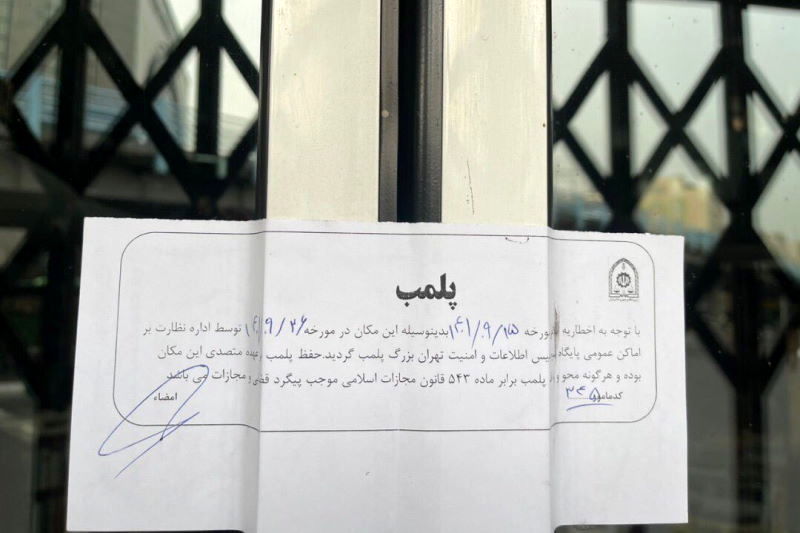 پلمب
با توجه به اخطاریه مورخه ۱۴۰۱/۹/۲۵ بدینوسیله این مکان در مورخه ۱۴۰۱/۹/۲۶ توسط اداره نظارت بر
اماکن عمومی پایگاه پلیس اطلاعات و امنیت تهران بزرگ پلمب گردید. حفظ پلمب بعهده متصدی این مکان
بوده و هرگونه محو پلمب برابر ماده ۵۴۳ قانون مجازات اسلامی موجب پیگرد و مجازات می باشد
کدمامور
امضاء